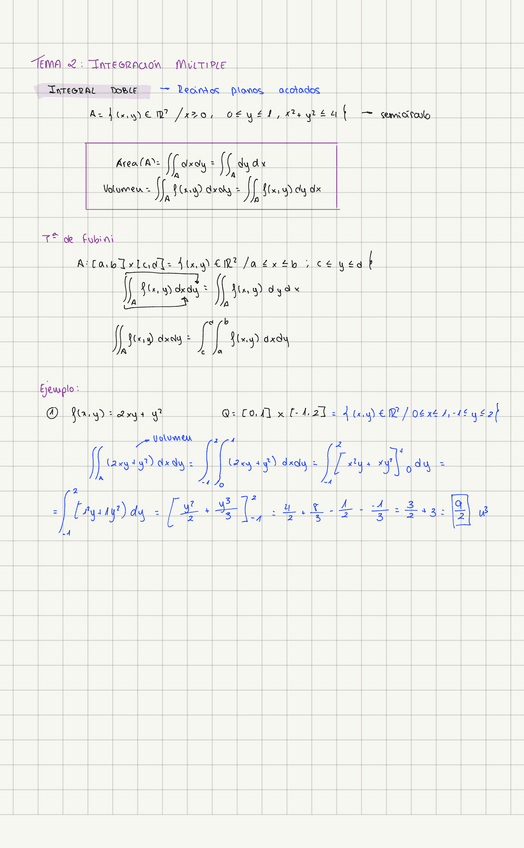 TEMA 2: INTEGRACIÓN MÚLTIPLE
INTEGRAL DOBLE → Recintos planos acotados
A = {(x,y) ∈ ℝ² / x ≥ 0, 0 ≤ y ≤ 1, x² + y² ≤ 4} → semicírculo
Area(A) = ∬_A dxdy = ∬_A dy dx
Volumen = ∬_A f(x,y) dxdy = ∬_A f(x,y) dy dx
Tᵐᵃ de Fubini
A = [a,b] x [c,d] = {(x,y) ∈ ℝ² / a ≤ x ≤ b ; c ≤ y ≤ d}
∬_A f(x,y) dxdy = ∬_A f(x,y) dy dx
∬_A f(x,y) dxdy = ∫_c^d ∫_a^b f(x,y) dxdy
Ejemplo:
① f(x,y) = 2xy + y² Q = [0,1] x [-1,2] = {(x,y) ∈ ℝ² / 0 ≤ x ≤ 1, -1 ≤ y ≤ 2}
→ Volumen
∬_A (2xy + y²) dxdy = ∫_{-1}^2 ∫_0^1 (2xy + y²) dxdy = ∫_{-1}^2 [x²y + xy²]_0^1 dy =
= ∫_{-1}^2 [1²y + 1y²) dy = [y²/2 + y³/3]_{-1}^2 = 4/2 + 8/3 - 1/2 - -1/3 = 3/2 + 3 = 9/2 u³